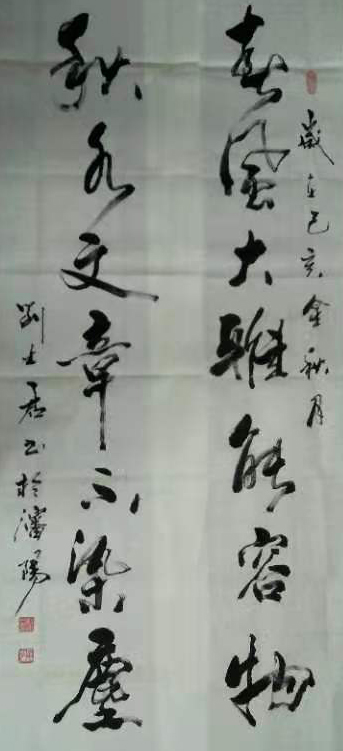 歲在己亥金秋月
春風大雅能容物
秋水文章不染塵
劉士君书於瀋陽